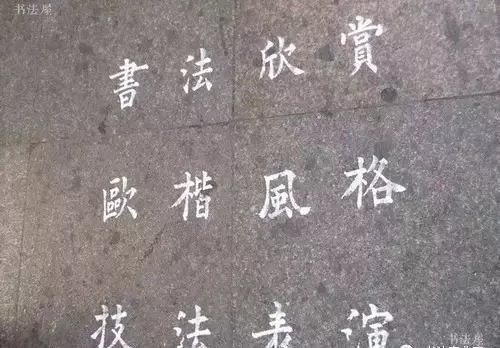 书法屋
書法欣賞
歐楷風格
技法表演
书法屋